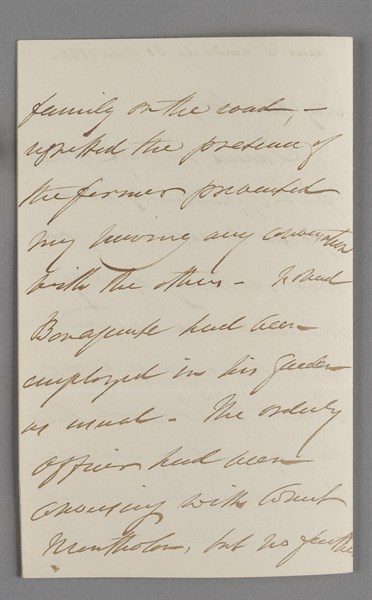 family on the road, –
regretted the presence of
the former prevented
my having any conversation
with the others –
Bonaparte had been
employed in his garden
as usual – The orderly
officer had been
conversing with Count
Montholon, but no further